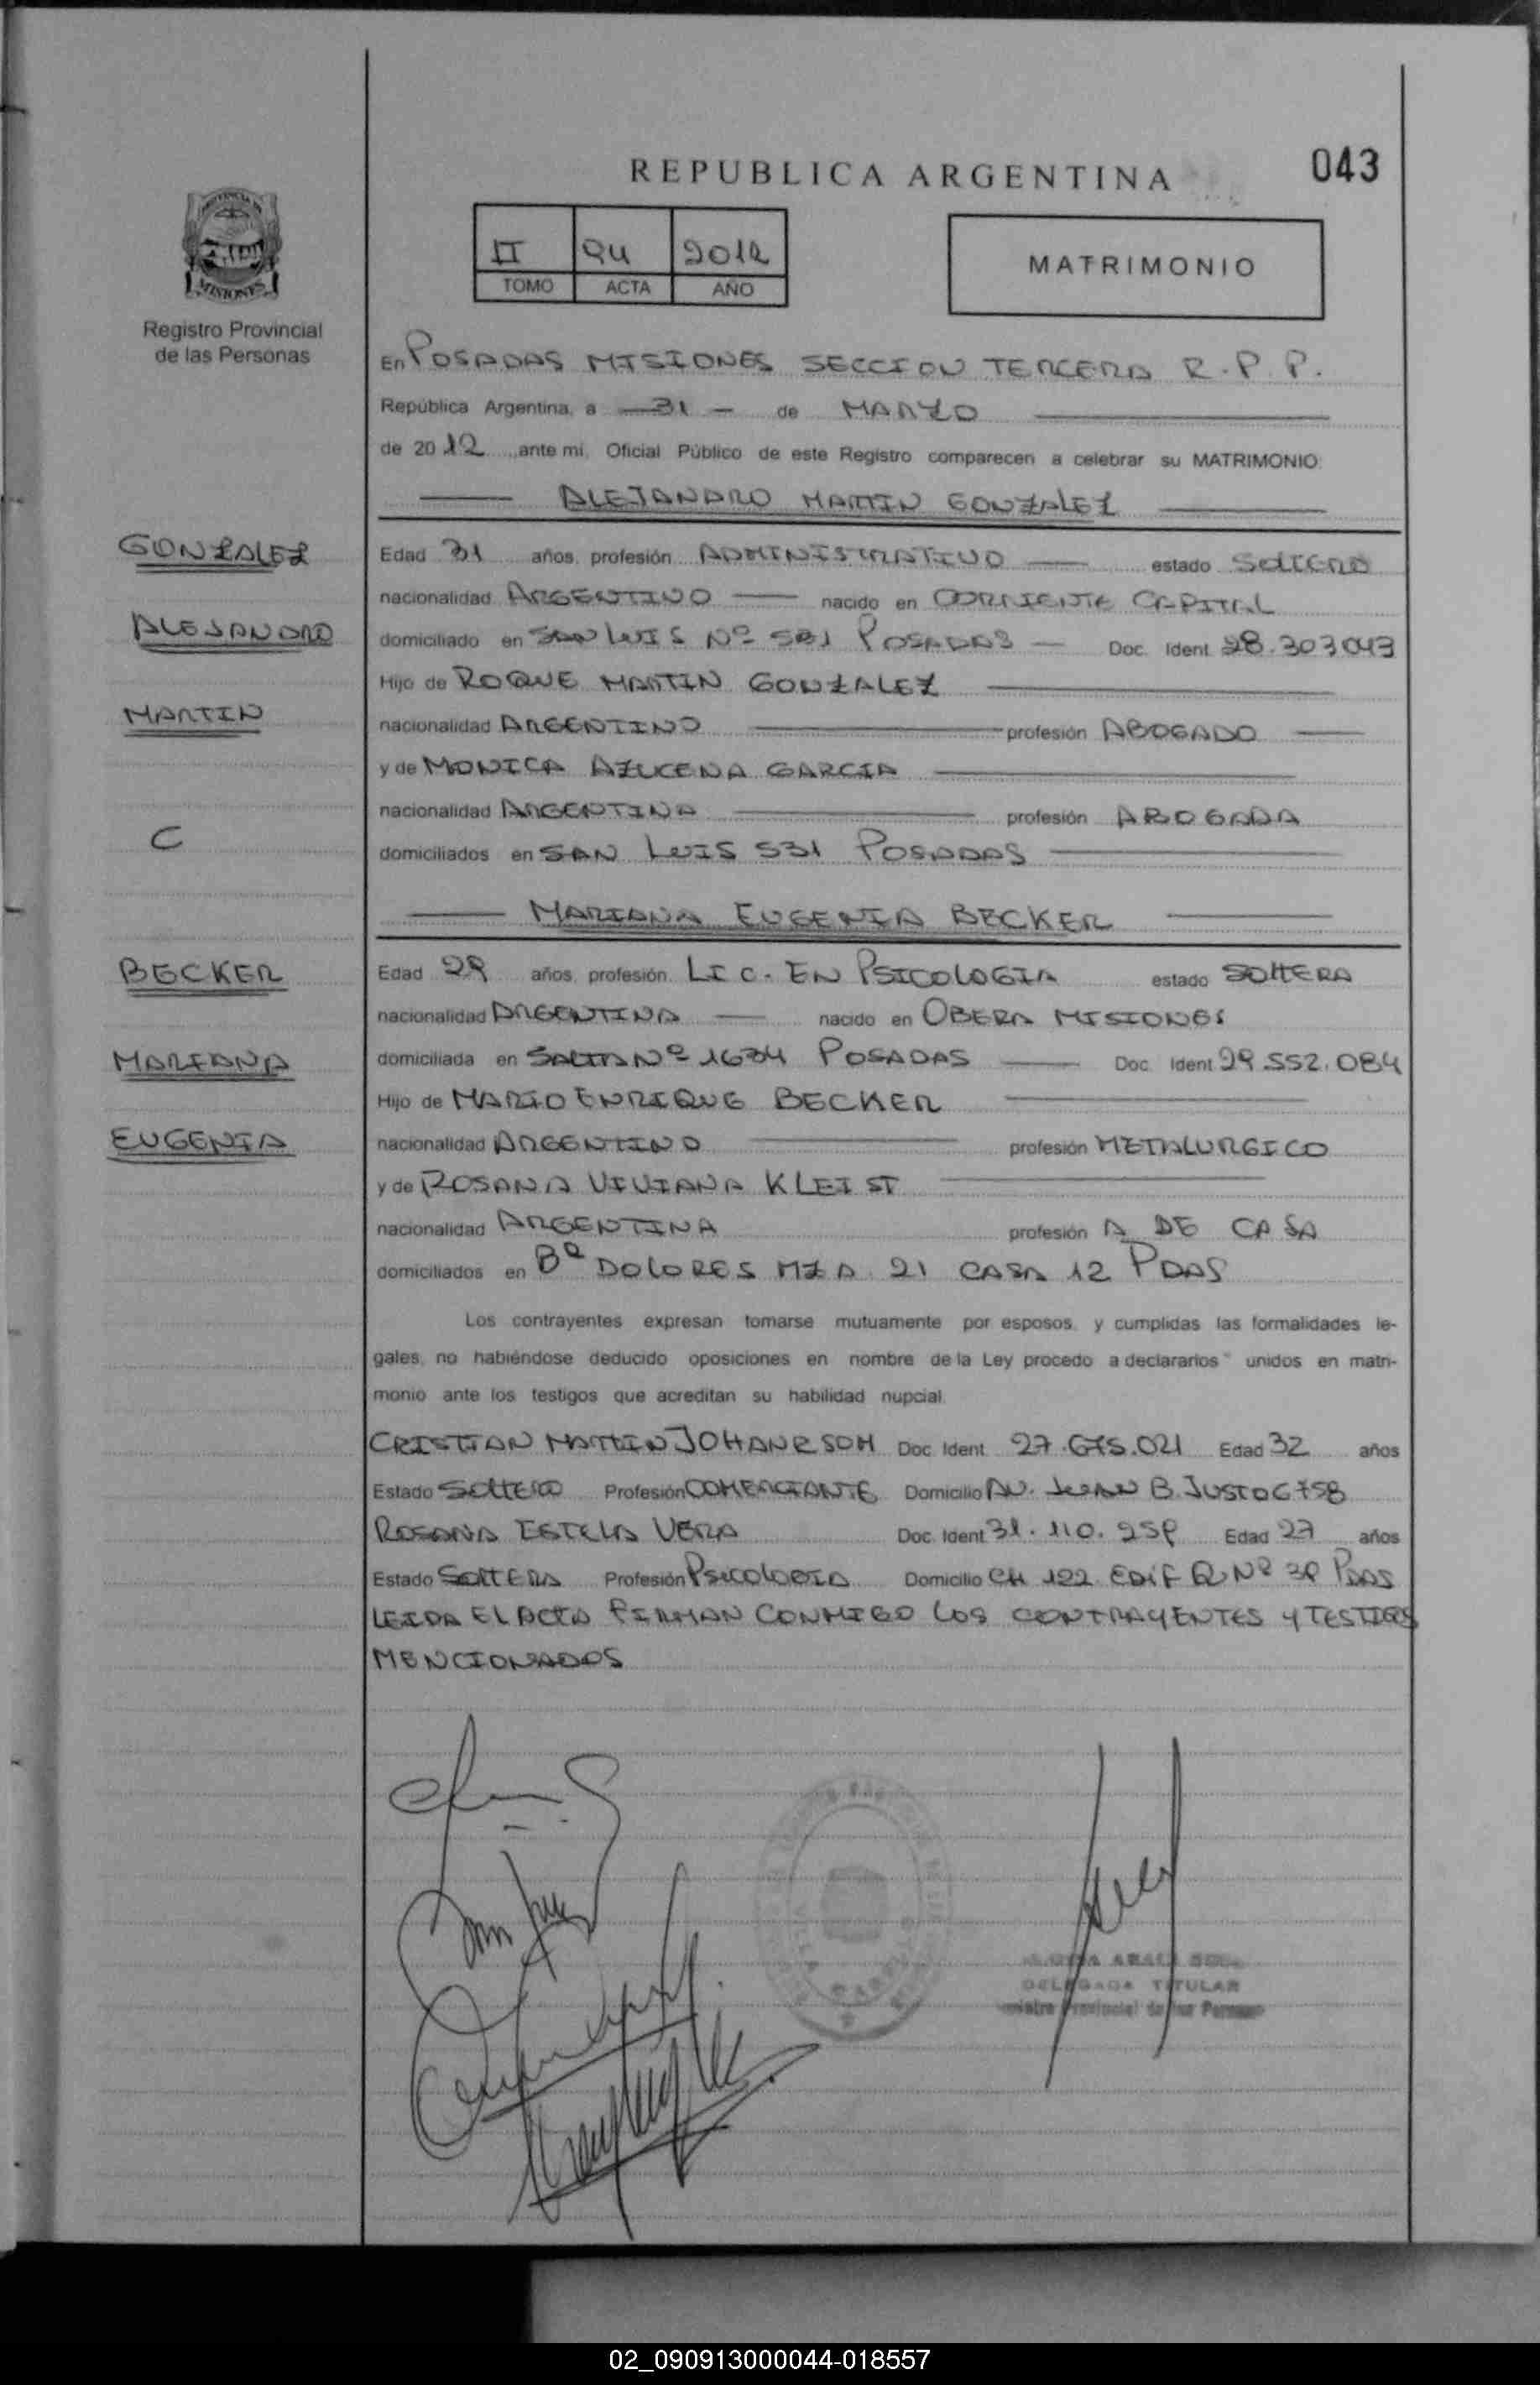 REPUBLICA ARGENTINA
043
II 94 2012
TOMO ACTA AÑO
MATRIMONIO
MISIONES
Registro Provincial
de las Personas
En POSADAS MISIONES SECCION TERCERA R.P.P.
República Argentina, a 31 de MARZO
de 2012 ante mi, Oficial Público de este Registro comparecen a celebrar su MATRIMONIO:
ALEJANDRO MARTIN GONZALEZ
GONZALEZ
ALEJANDRO
MARTIN
C
Edad 31 años, profesión ADMINISTRATIVO estado SOLTERO
nacionalidad ARGENTINO nacido en CORRIENTE CAPITAL
domiciliado en SAN LUIS Nº 531 POSADAS Doc. Ident. 28.303043
Hijo de ROQUE MARTIN GONZALEZ
nacionalidad ARGENTINO profesión ABOGADO
y de MONICA AZUCENA GARCIA
nacionalidad ARGENTINA profesión ABOGADA
domiciliados en SAN LUIS 531 POSADAS
MARIANA EUGENIA BECKER
BECKER
MARIANA
EUGENIA
Edad 29 años, profesión LIC. EN PSICOLOGIA estado SOLTERA
nacionalidad ARGENTINA nacido en OBERA MISIONES
domiciliada en SALTA Nº 1634 POSADAS Doc. Ident. 29.552.084
Hijo de MARIO ENRIQUE BECKER
nacionalidad ARGENTINO profesión METALURGICO
y de ROSANA VIVIANA KLEIST
nacionalidad ARGENTINA profesión A DE CASA
domiciliados en Bº DOLORES MZA 21 CASA 12 PDAS
Los contrayentes expresan tomarse mutuamente por esposos, y cumplidas las formalidades le-
gales, no habiéndose deducido oposiciones en nombre de la Ley procedo a declararlos unidos en matri-
monio ante los testigos que acreditan su habilidad nupcial.
CRISTIAN MARTIN JOHANRSON Doc. Ident. 27.675.021 Edad 32 años
Estado SOLTERO Profesión COMERCIANTE Domicilio AV. JUAN B. JUSTO 6758
ROSANA ESTELA VERA Doc. Ident. 31.110.259 Edad 27 años
Estado SOLTERA Profesión PSICOLOGIA Domicilio CH 122 EDIF Q Nº 39 PDAS
LEIDA EL ACTA FIRMAN CONMIGO LOS CONTRAYENTES Y TESTIGOS
MENCIONADOS
DELEGADA TITULAR
Provincial de las Personas
02_090913000044-018557